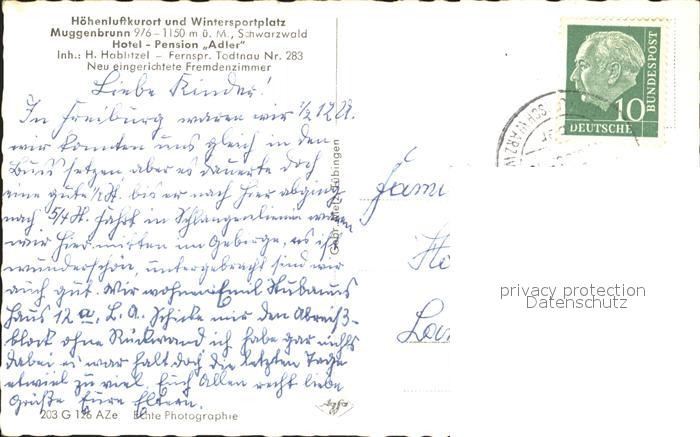 Höhenluftkurort und Wintersportplatz
Muggenbrunn 976–1150 m ü. M., Schwarzwald
Hotel - Pension „Adler"
Inh.: H. Hablitzel – Fernspr. Todtnau Nr. 283
Neu eingerichtete Fremdenzimmer
Liebe Kinder!
In Freiburg waren wir ½ 12 U.
wir konnten uns gleich in den
Buss setzen aber es dauerte doch
eine gute ½ St. bis er nach hier abging
nach 5/4 St. Fahrt in Schlangenlienen waren
wir hier mitten im Gebirge, es ist
wunderschön, untergebracht sind wir
auch gut. Wir wohnen Emil
Haus 12 a. L. A. Schicke mir den Abreiß-
block ohne Rückwand ich habe gar nichts
dabei es war halt doch die letzten Tage
etwas zu viel. Euch Allen recht liebe
Grüße Eure Eltern.
203 G 126 AZe Echte Photographie
Gebr. Metz Tübingen
10
DEUTSCHE
BUNDESPOST
SCHWARZW
Fami
La
privacy protection
Datenschutz